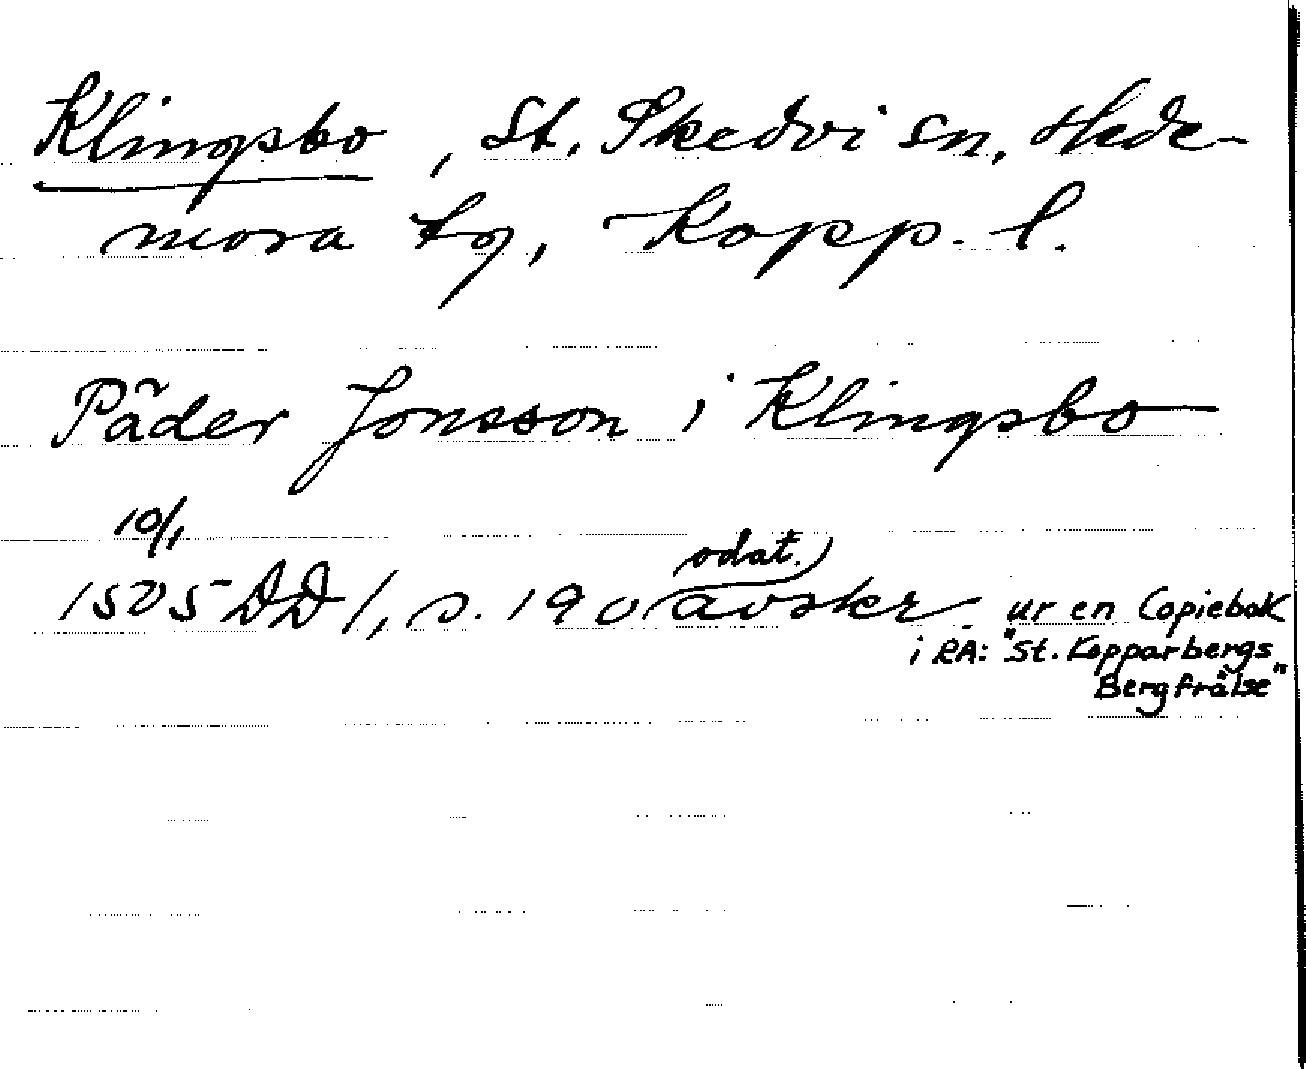 Klingsbo, St. Skedvi sn, Hede-
mora tg, Kopp. l.
Päder Jonsson i Klingsbo
10/1
odat.
1505 DD 1, s. 190 avskr. ur en Copiebok
i RA: "St. Kopparbergs
Bergfrälse"